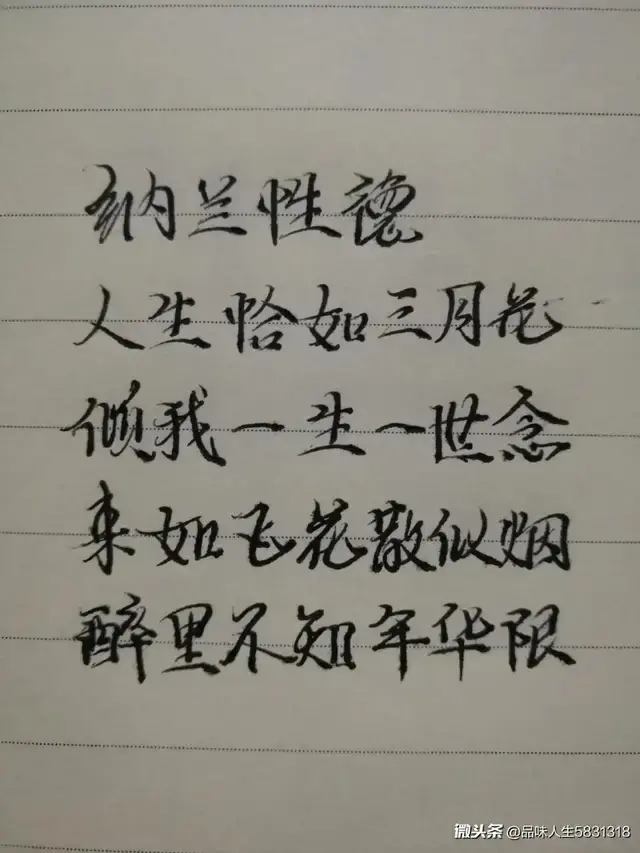 纳兰性德
人生恰如三月花
倾我一生一世念
来如飞花散似烟
醉里不知年华限
微头条 @品味人生5831318